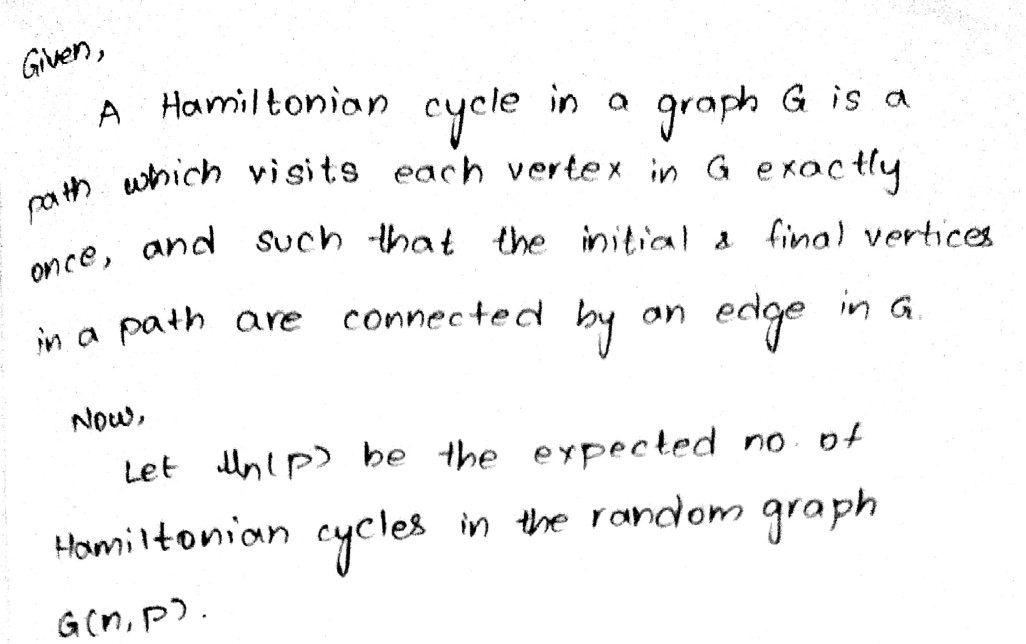 Given,
A Hamiltonian cycle in a graph G is a
path which visits each vertex in G exactly
once, and such that the initial & final vertices
in a path are connected by an edge in G.
Now,
Let μn(p) be the expected no. of
Hamiltonian cycles in the random graph
G(n, p).